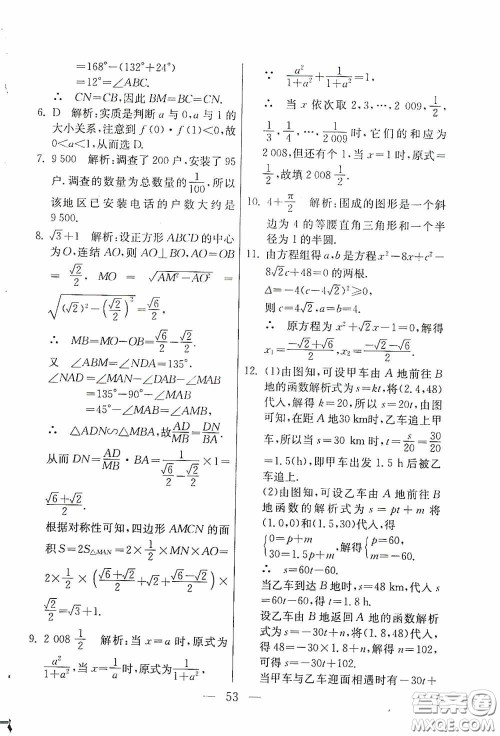 =168°－(132°＋24°)
=12°=∠ABC.
∴ CN=CB,因此 BM=BC=CN.
6. D 解析:实质是判断 a 与 0,a 与 1 的
大小关系,注意到 f(0)·f(1)<0,故
0<a<1,从而选 D.
7. 9 500 解析:调查了 200 户,安装了 95
户.调查的数量为总数量的 1/100,所以
该地区已安装电话的户数大约是
9 500.
8. √3+1 解析:设正方形 ABCD 的中心
为 O,连结 AO,则 AO⊥BO,AO=OB
=√2/2, MO = √(AM²－AO²) =
√((√2)²－(√2/2)²)=√6/2,
∴ MB=MO－OB=(√6－√2)/2.
又 ∠ABM=∠NDA=135°,
∠NAD =∠MAN－∠DAB－∠MAB
=135°－90°－∠MAB
=45°－∠MAB=∠AMB,
∴ △ADN∽△MBA,故 AD/MB=DN/BA.
从而 DN=AD/MB·BA=1/((√6－√2)/2)×1=
(√6+√2)/2.
根据对称性可知,四边形 AMCN 的面
积 S=2S△MAN=2×1/2×MN×AO=
2×1/2×((√6+√2)/2+√2+(√6－√2)/2)
×√2/2=√3+1.
9. 2 008 1/2 解析:当 x=a 时,原式为
a²/(1+a²),当 x=1/a 时,原式为 1/(1+a²),
∵ a²/(1+a²)+1/(1+a²)=1,
∴ 当 x 依次取 2,3,…,2 009,1/2,
1/3,1/4,…,1/2 009 时,它们的和应为
2 008,但还有个 1,当 x=1 时,原式=
1/2,故填 2 008 1/2.
10. 4+π/2 解析:围成的图形是一个斜
边为 4 的等腰直角三角形和一个半
径为 1 的半圆.
11. 由方程组得 a,b 是方程 x²－8x+c²－
8√2c+48=0 的两根.
Δ=－4(c－4√2)²≥0,
则 c=4√2,a=b=4.
∴ 原方程为 x²+√2x－1=0,解得
x₁=(－√2+√6)/2,x₂=(－√2－√6)/2.
12. (1)由图知,可设甲车由 A 地前往 B
地的函数解析式为 s=kt,将(2.4,48)
代入,解得 k=20,所以 s=20t,由图
可知,在距 A 地30 km时,乙车追上甲
车,所以当 s=30 时,t=s/20=30/20
=1.5(h),即甲车出发 1.5 h 后被乙
车追上.
(2)由图知,可设乙车由 A 地前往 B
地函数的解析式为 s=pt+m 将
(1.0,0)和(1.5,30)代入,得
{0=p+m, 30=1.5p+m, 解得{p=60, m=－60.
∴ s=60t－60.
当乙车到达 B 地时,s=48 km,代入
s=60t－60,得 t=1.8 h.
设乙车由 B 地返回 A 地的函数解析
式为 s=－30t+n,将(1.8,48)代入,
得 48=－30×1.8+n,解得 n=102.
∴ s=－30t+102.
当甲车与乙车迎面相遇时有－30t+
— 53 —
答案圈
MXQE.COM